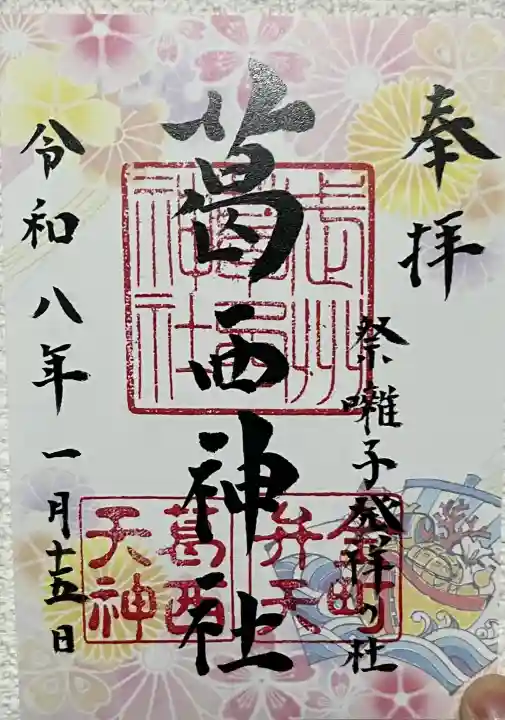 奉拝
祭囃子発祥の社
葛西神社
令和八年一月十五日
武州葛西神社
金町弁天
葛西天神